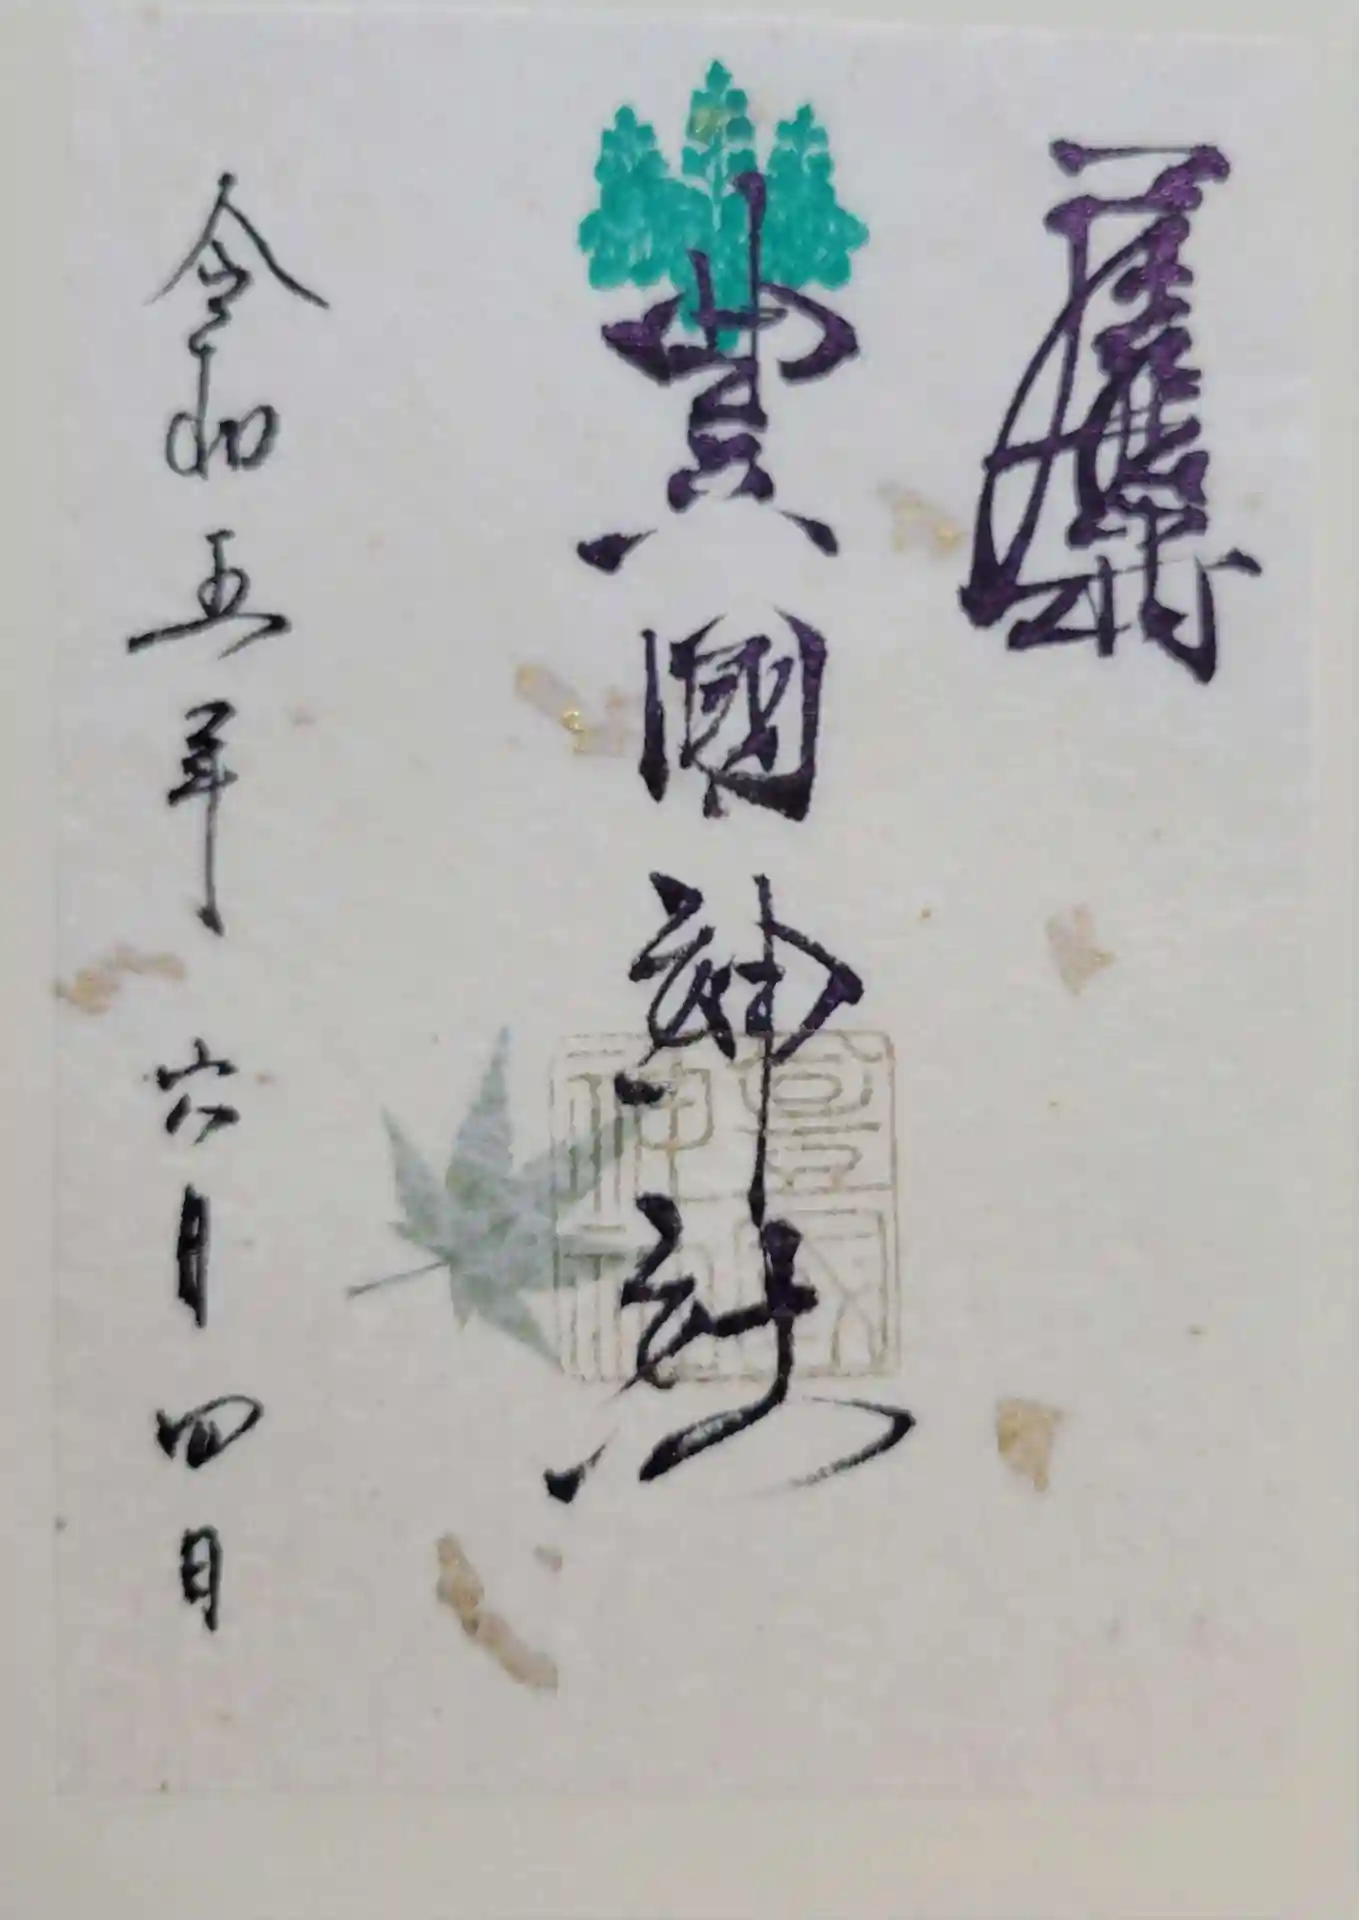 豊國神社
令和五年六月四日
豊國
神社